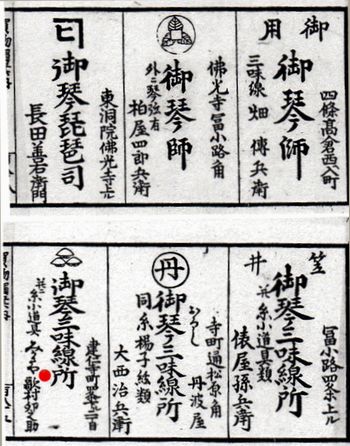 御用
四條高倉西入町
御琴師
三味線 畑 傳兵衛
佛光寺冨小路角
御琴師
外ニ琴弦有
柏屋四郎兵衛
東洞院佛光寺上ル
御琴琵琶司
長田善右衛門
笠
井
冨小路四条上ル
御琴三味線所
并糸小道具類
俵屋孫兵衛
寺町通松原角
丹波屋
丹
御琴三味線所
同糸楊子絃類
大西治兵衛
御琴三味線所
并糸小道具